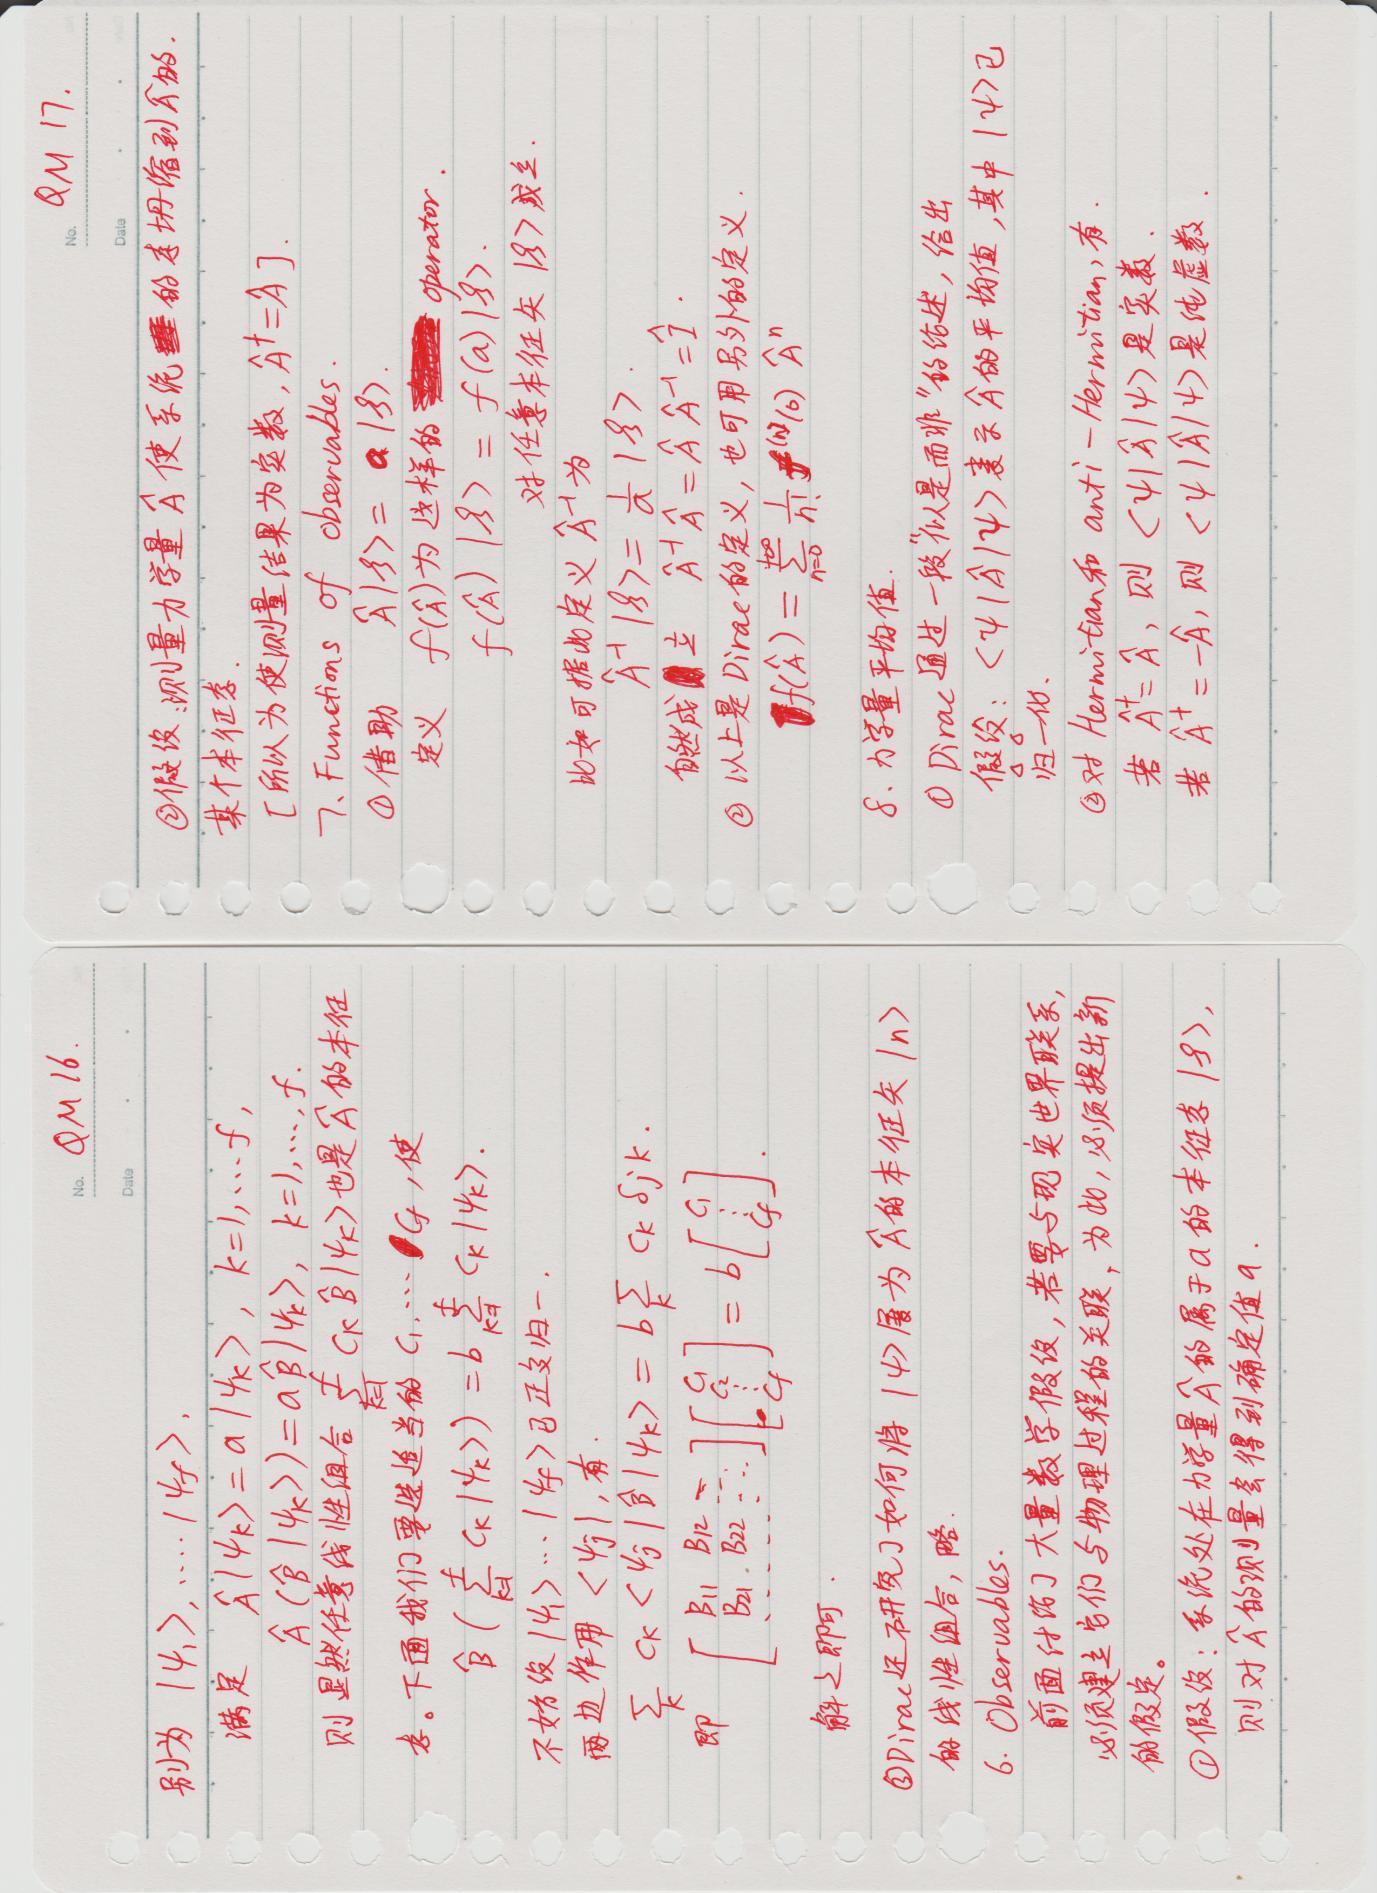 No. QM 16.
Date
别为 |ψ₁⟩, .... |ψf⟩,
满足 Â|ψk⟩ = a|ψk⟩, k=1, ... f,
Â(B̂|ψk⟩) = aB̂|ψk⟩, k=1, ..., f.
则显然任意线性组合 ∑_{k=1}^{f} ck B̂|ψk⟩也是Â的本征
态。下面我们要选适当的 C₁ ... Cf, 使
B̂(∑_{k=1}^{f} ck|ψk⟩) = b∑_{k=1}^{f} ck|ψk⟩.
不妨设|ψ₁⟩ ... |ψf⟩已正交归一.
两边作用⟨ψj|, 有.
∑_k ck⟨ψj|B̂|ψk⟩ = b∑_k ck δjk.
即 [B₁₁ B₁₂ ... ; B₂₁ B₂₂ ... ; ......] [C₁ C₂ ⋮ Cf] = b [C₁ ⋮ Cf].
解之即可.
③Dirac还研究了如何将 |ψ⟩展为Â的本征矢|n⟩
的线性组合, 略.
6. Observables.
前面讨论了大量数学假设, 若要与现实世界联系,
必须建立它们与物理过程的关联, 为此, 必须提出新
的假定。
①假设: 系统处在力学量Â的属于a的本征态|ξ⟩,
则对Â的测量会得到确定值a.
No. QM 17.
Date
②假设: 测量力学量Â使系统的态坍缩到Â的.
某个本征态.
[所以为使测量结果为实数, Â†=Â].
7. Functions of observables.
①借助 Â|ξ⟩ = a|ξ⟩.
定义 f(Â)为这样的 operator.
f(Â)|ξ⟩ = f(a)|ξ⟩.
对任意本征矢|ξ⟩成立.
比如可据此定义Â⁻¹为
Â⁻¹|ξ⟩ = 1/a |ξ⟩.
自然成立 Â⁻¹Â = ÂÂ⁻¹ = Î.
②以上是Dirac的定义, 也可用另外的定义.
f(Â) = ∑_{n=0}^{+∞} 1/n! f⁽ⁿ⁾(0) Âⁿ
8. 力学量平均值.
①Dirac通过一段"似是而非"的论述, 给出
假设: ⟨ψ|Â|ψ⟩表示Â的平均值, 其中|ψ⟩已
归一化.
②对Hermitian和anti-Hermitian, 有.
若Â†=Â, 则⟨ψ|Â|ψ⟩是实数.
若Â†=-Â, 则⟨ψ|Â|ψ⟩是纯虚数.